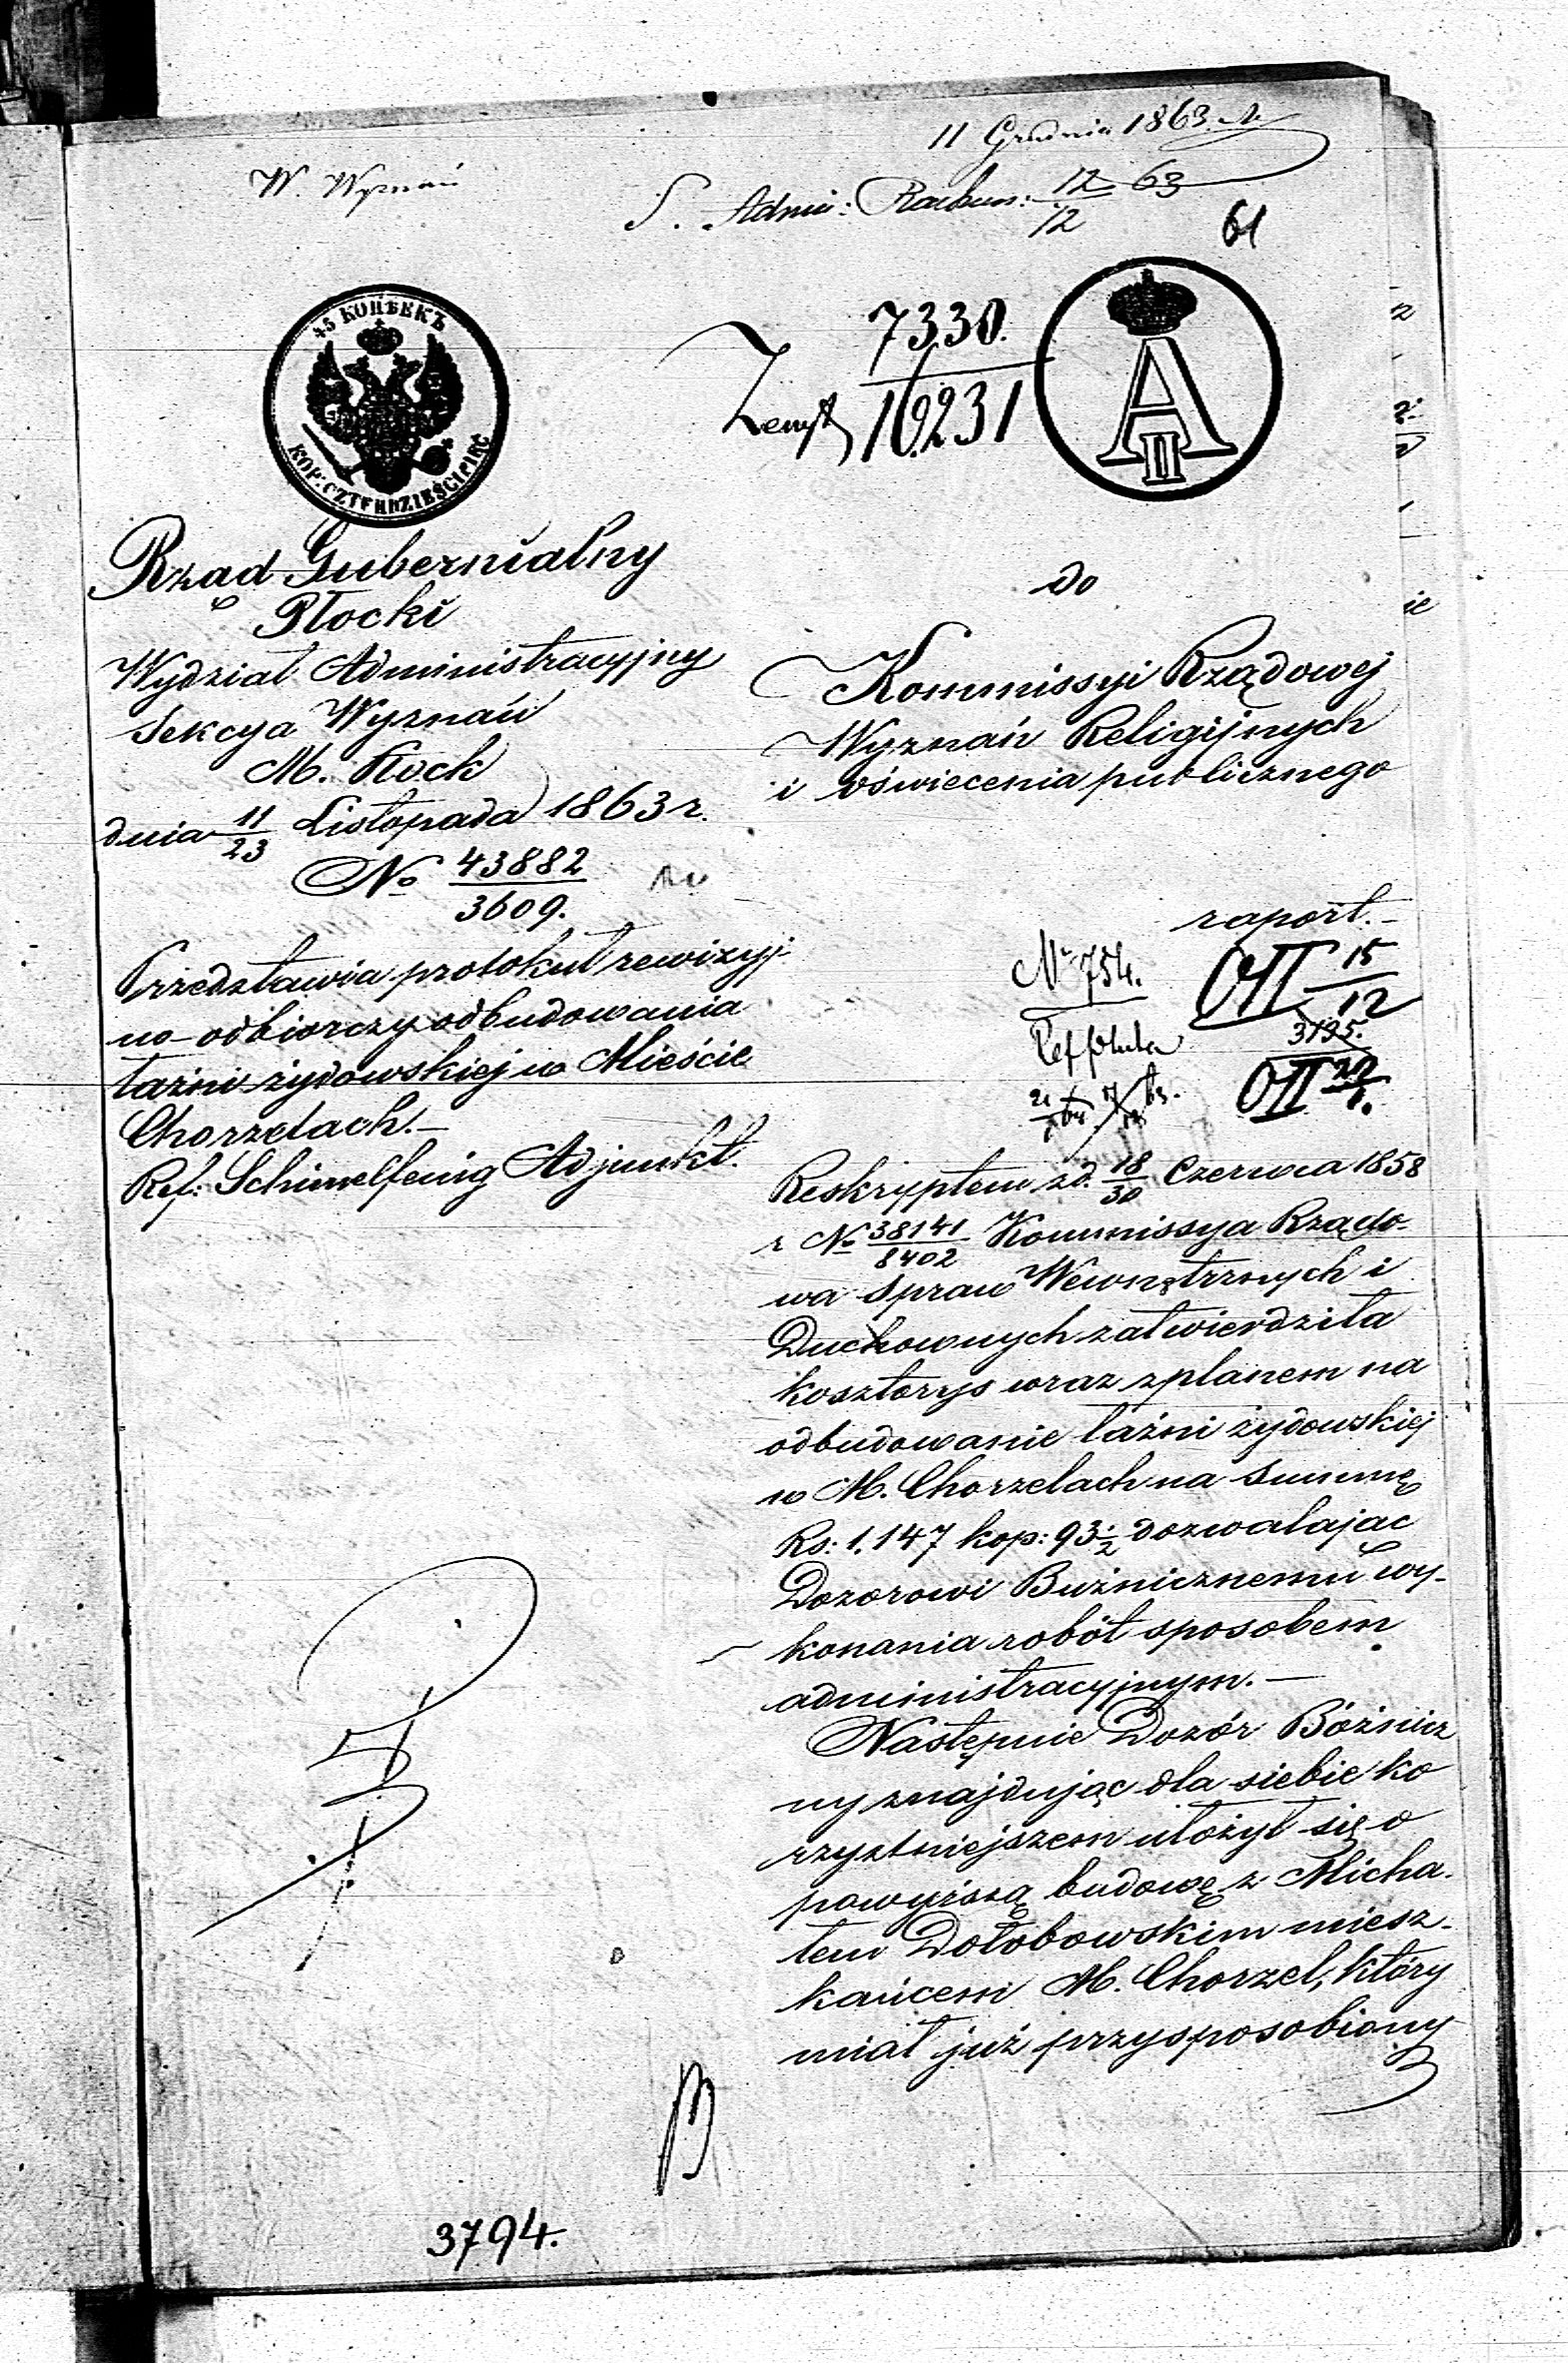 11 Grudnia 1863
W. Wyznań
S. Admin: Rachun: 12/12 63
61
45 КОПѢЕКЪ
KOP: CZTERDZIEŚCI PIĘĆ
7330.
16231
A II
Rząd Gubernialny
Płocki
Wydział Administracyjny
Sekcya Wyznań
M. Płock
dnia 11/23 Listopada 1863 r.
No 43882/3609.
Przedstawia protokuł rewizyj-
no-odbiorczy odbudowania
łaźni żydowskiej w Mieście
Chorzelach.—
Ref: Schimelfenig Adjunkt.
do
Kommissyi Rządowej
Wyznań Religijnych
i oświecenia publicznego
raport.—
No 754.
15/12
3195.
Reskryptem z d. 18/30 Czerwca 1858
r No 38141/8402 Kommissya Rządo-
wa Spraw Wewnętrznych i
Duchownych zatwierdziła
kosztorys wraz z planem na
odbudowanie łaźni żydowskiej
w M. Chorzelach na Summę
Rs: 1.147 kop: 93 1/2 dozwalając
Dozorowi Bużnicznemu wy-
konania robót sposobem
administracyjnym.—
Następnie Dozór Bóżnicz
ny znajdując dla siebie ko
rzystniejszem ułożył się o
powyższą budowę z Micha-
łem Dołobowskim miesz-
kańcem M. Chorzel, który
miał już przysposobiony
3794.